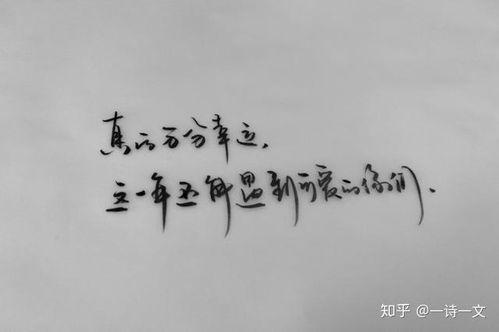 真的万分幸运,
这一年还能遇到可爱的你们.
知乎 @一诗一文